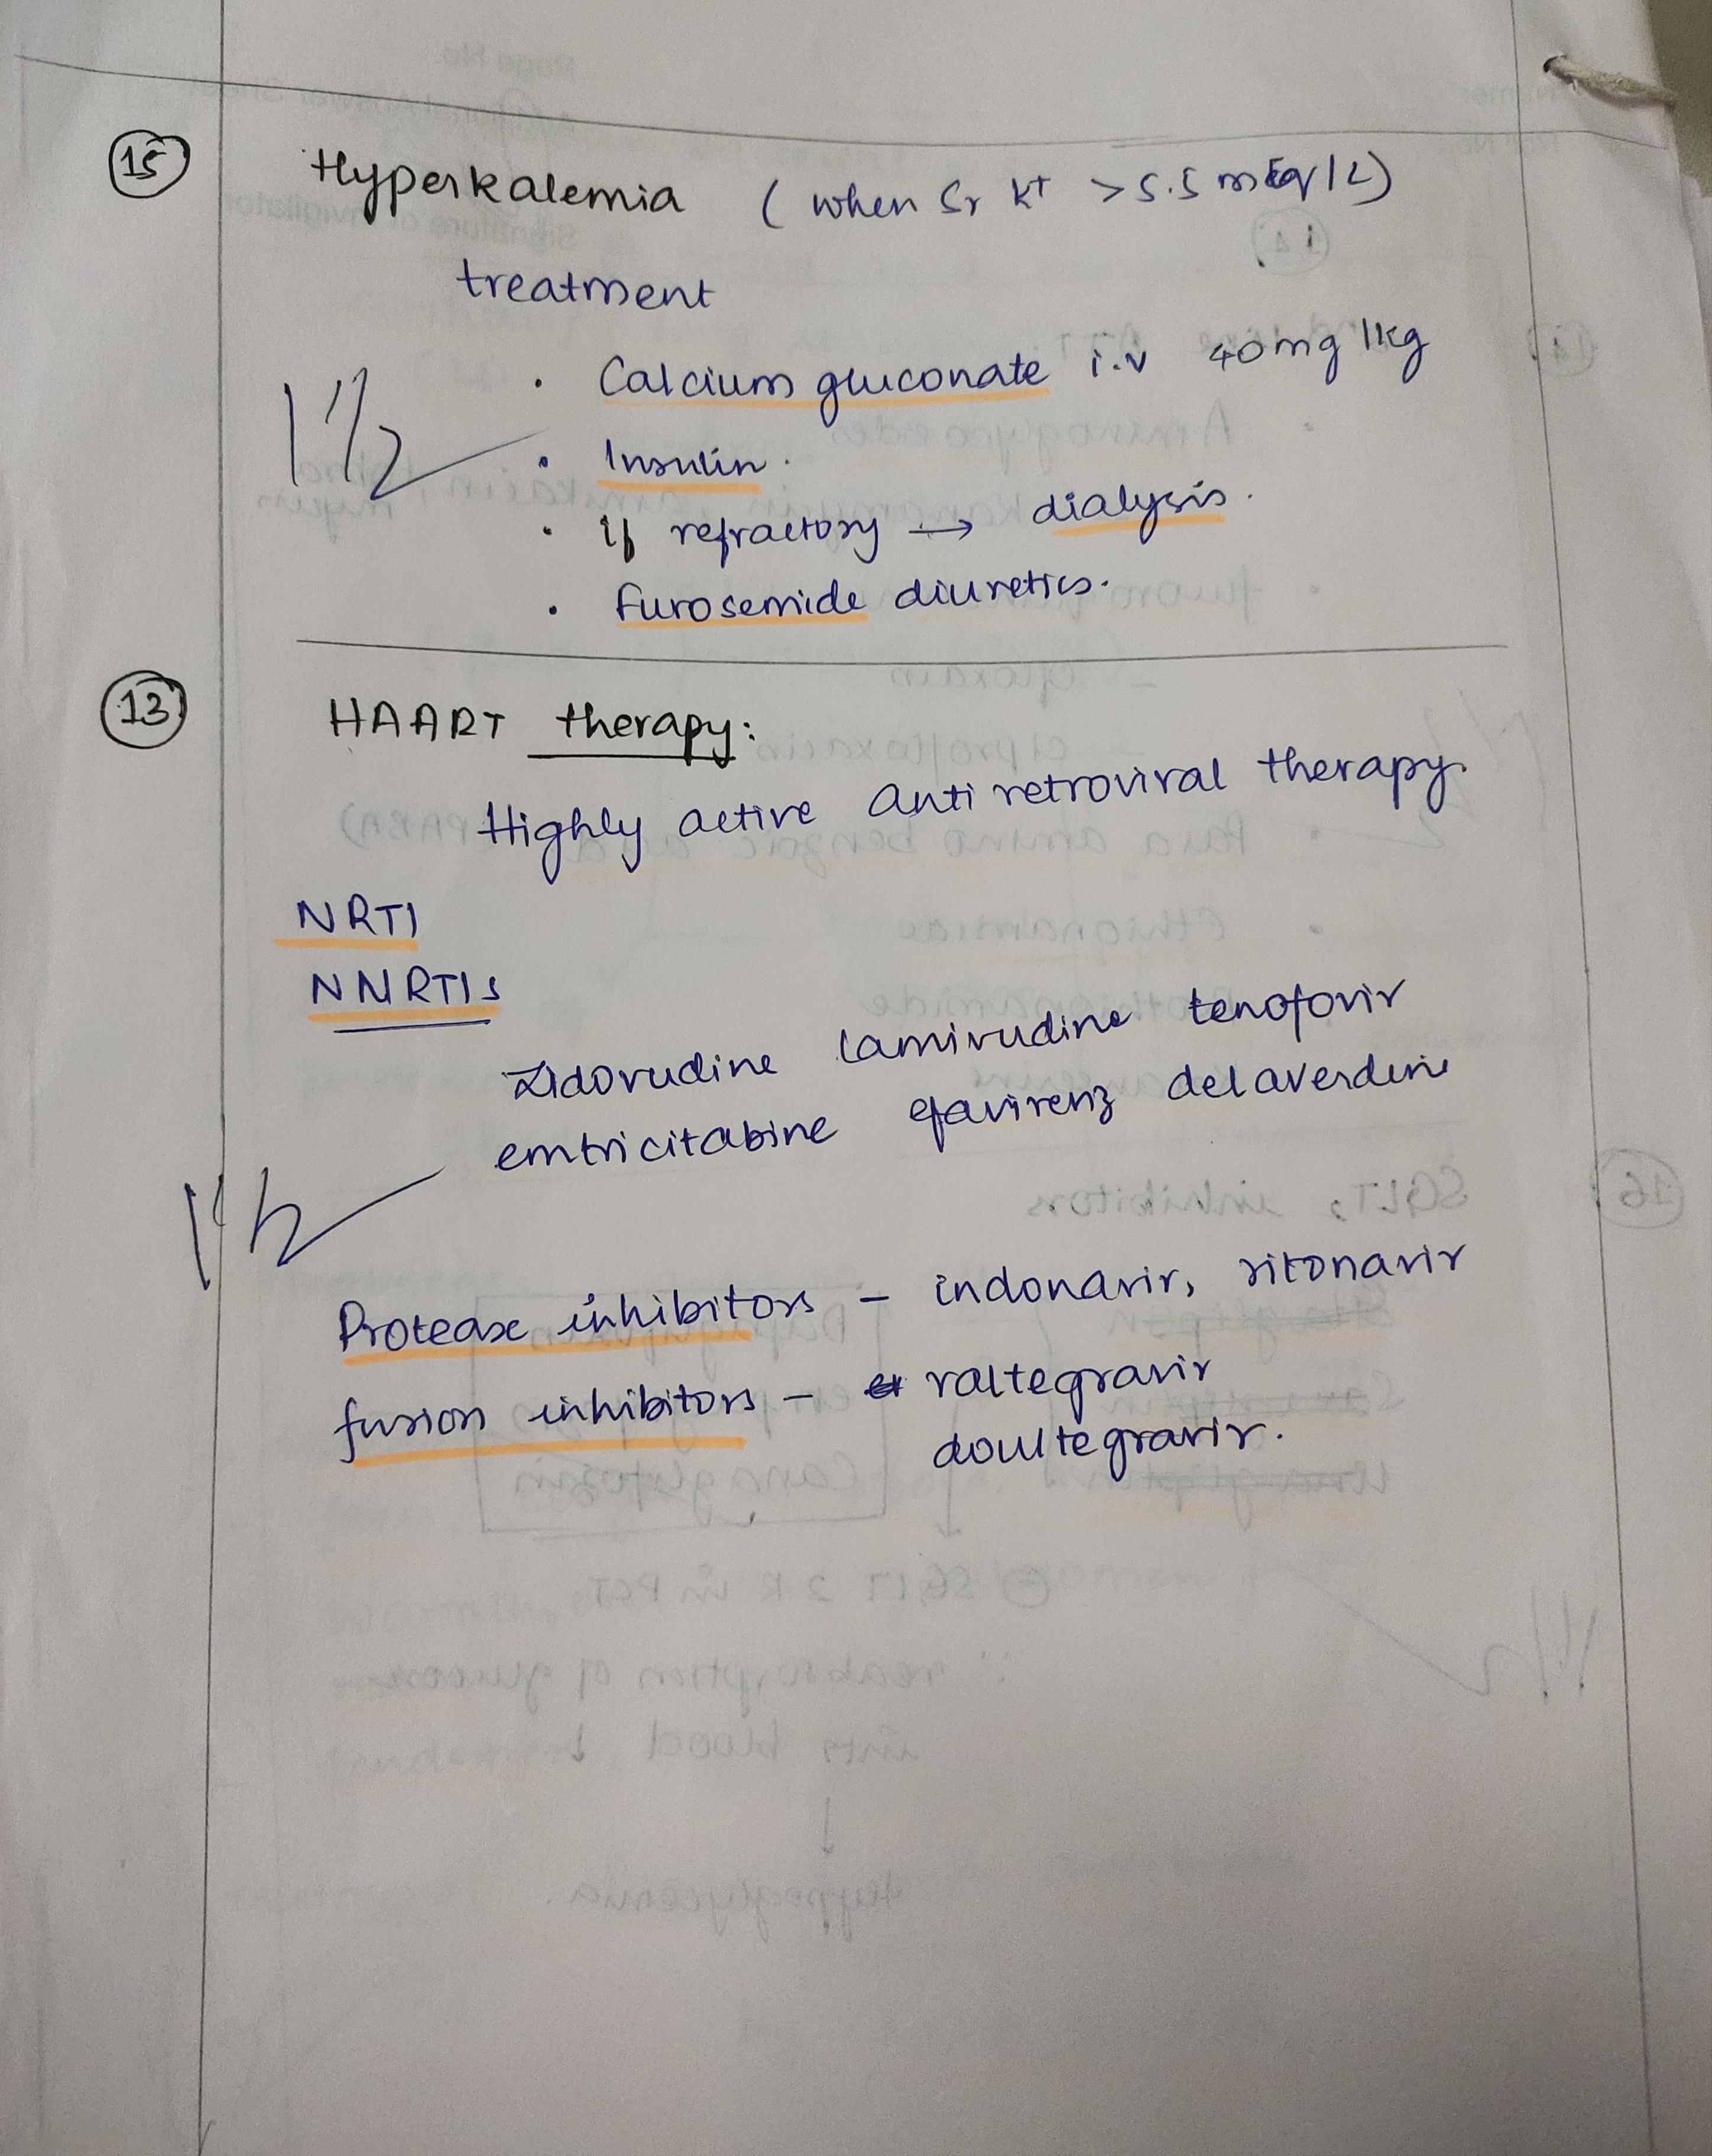 15
Hyperkalemia (when Sr K+ >5.5 mEq/L)
treatment
1 1/2
• Calcium gluconate i.v 40mg/kg
• Insulin.
• if refractory → dialysis.
• furosemide diuretics.
13
HAART therapy:
Highly active Anti retroviral therapy.
NRTI
NNRTIs
Zidovudine lamivudine tenofovir
emtricitabine efavirenz delaverdine
1 1/2
Protease inhibitors – indonavir, ritonavir
fusion inhibitors – raltegravir
doultegravir.